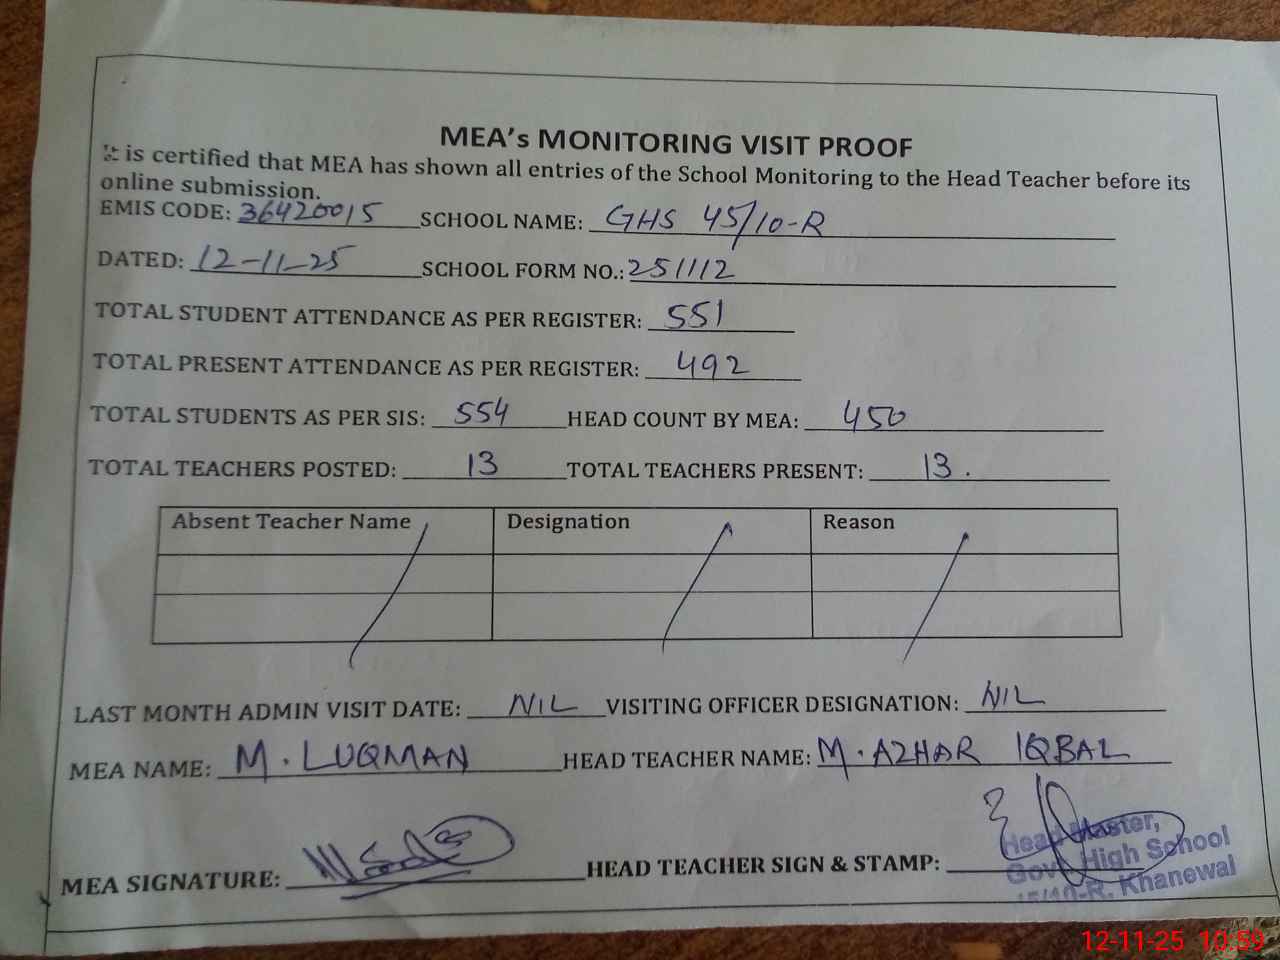 MEA's MONITORING VISIT PROOF
It is certified that MEA has shown all entries of the School Monitoring to the Head Teacher before its
online submission.
EMIS CODE: 36420015 SCHOOL NAME: GHS 45/10-R
DATED: 12-11-25 SCHOOL FORM NO.: 251112
TOTAL STUDENT ATTENDANCE AS PER REGISTER: 551
TOTAL PRESENT ATTENDANCE AS PER REGISTER: 492
TOTAL STUDENTS AS PER SIS: 554 HEAD COUNT BY MEA: 450
TOTAL TEACHERS POSTED: 13 TOTAL TEACHERS PRESENT: 13.
Absent Teacher Name Designation Reason
LAST MONTH ADMIN VISIT DATE: NIL VISITING OFFICER DESIGNATION: NIL
MEA NAME: M. LUQMAN HEAD TEACHER NAME: M. AZHAR IQBAL
MEA SIGNATURE: HEAD TEACHER SIGN & STAMP:
Head Master,
Govt. High School
45/10-R. Khanewal
12-11-25 10:59